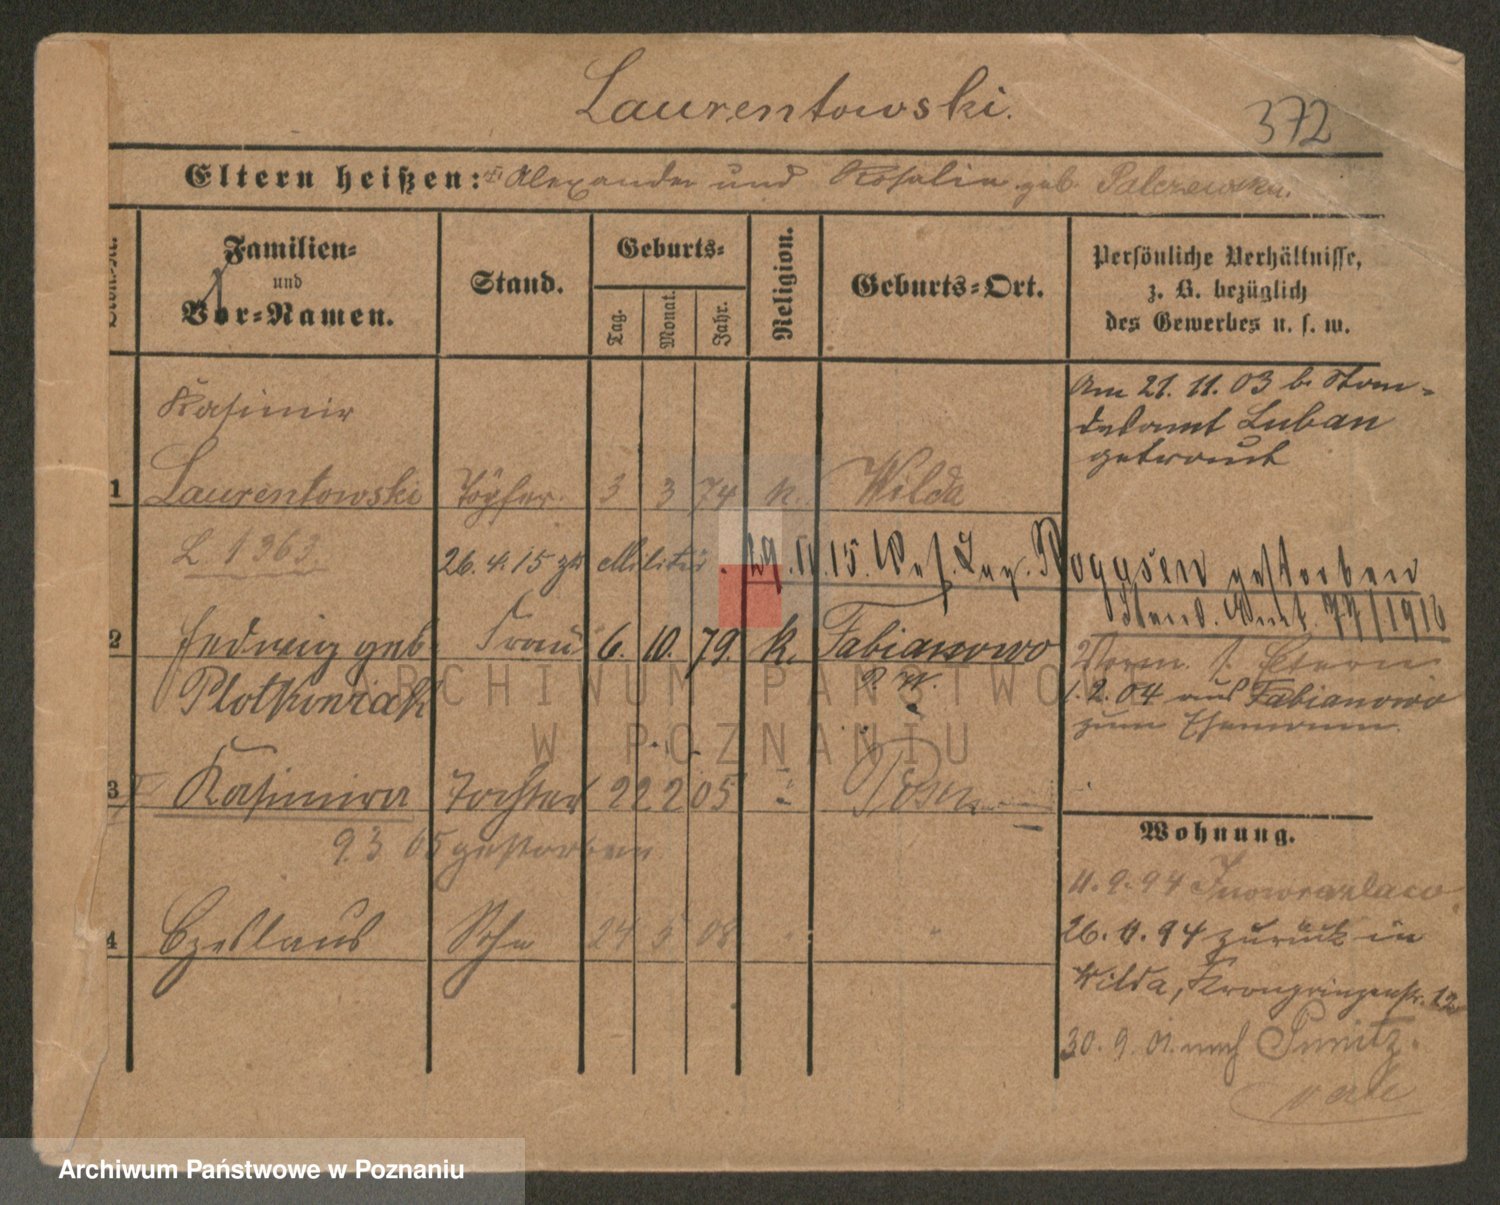 Laurentowski.
372
Eltern heißen: Alexander und Rosalie geb. Palczewska.
Familien-
und
Vor-Namen.
Stand.
Geburts-
Tag.
Monat.
Jahr.
Religion.
Geburts-Ort.
Persönliche Verhältnisse,
z. B. bezüglich
des Gewerbes u. s. w.
Kasimir
1 Laurentowski Töpfer. 3 3 74 k. Wilda
Am 21. 11. 03 b. Stan-
desamt Luban
getraut
L 1363
26. 4. 15 z. Militär. 29. 11. 15. Res. Laz. Roggsen gestorben
Stand. Amt. 77/1916
2 Hedwig geb. Frau 6. 10. 79. k. Fabianowo
Plotkowiak P. W.
Vorm. b. Eltern
1. 2. 04 aus Fabianowo
zum Ehemann.
3 Kasimira Tochter 22 2 05 " Posen
9 3 05 gestorben
4 Czeslaus Sohn 24 5 08 " "
Wohnung.
11. 9. 94 Inowrazlaw.
26. 11. 94 zurück in
Wilda, Kronprinzenstr. 12
30. 9. 01. nach Punitz.
ARCHIWUM PAŃSTWOWE
W POZNANIU
Archiwum Państwowe w Poznaniu